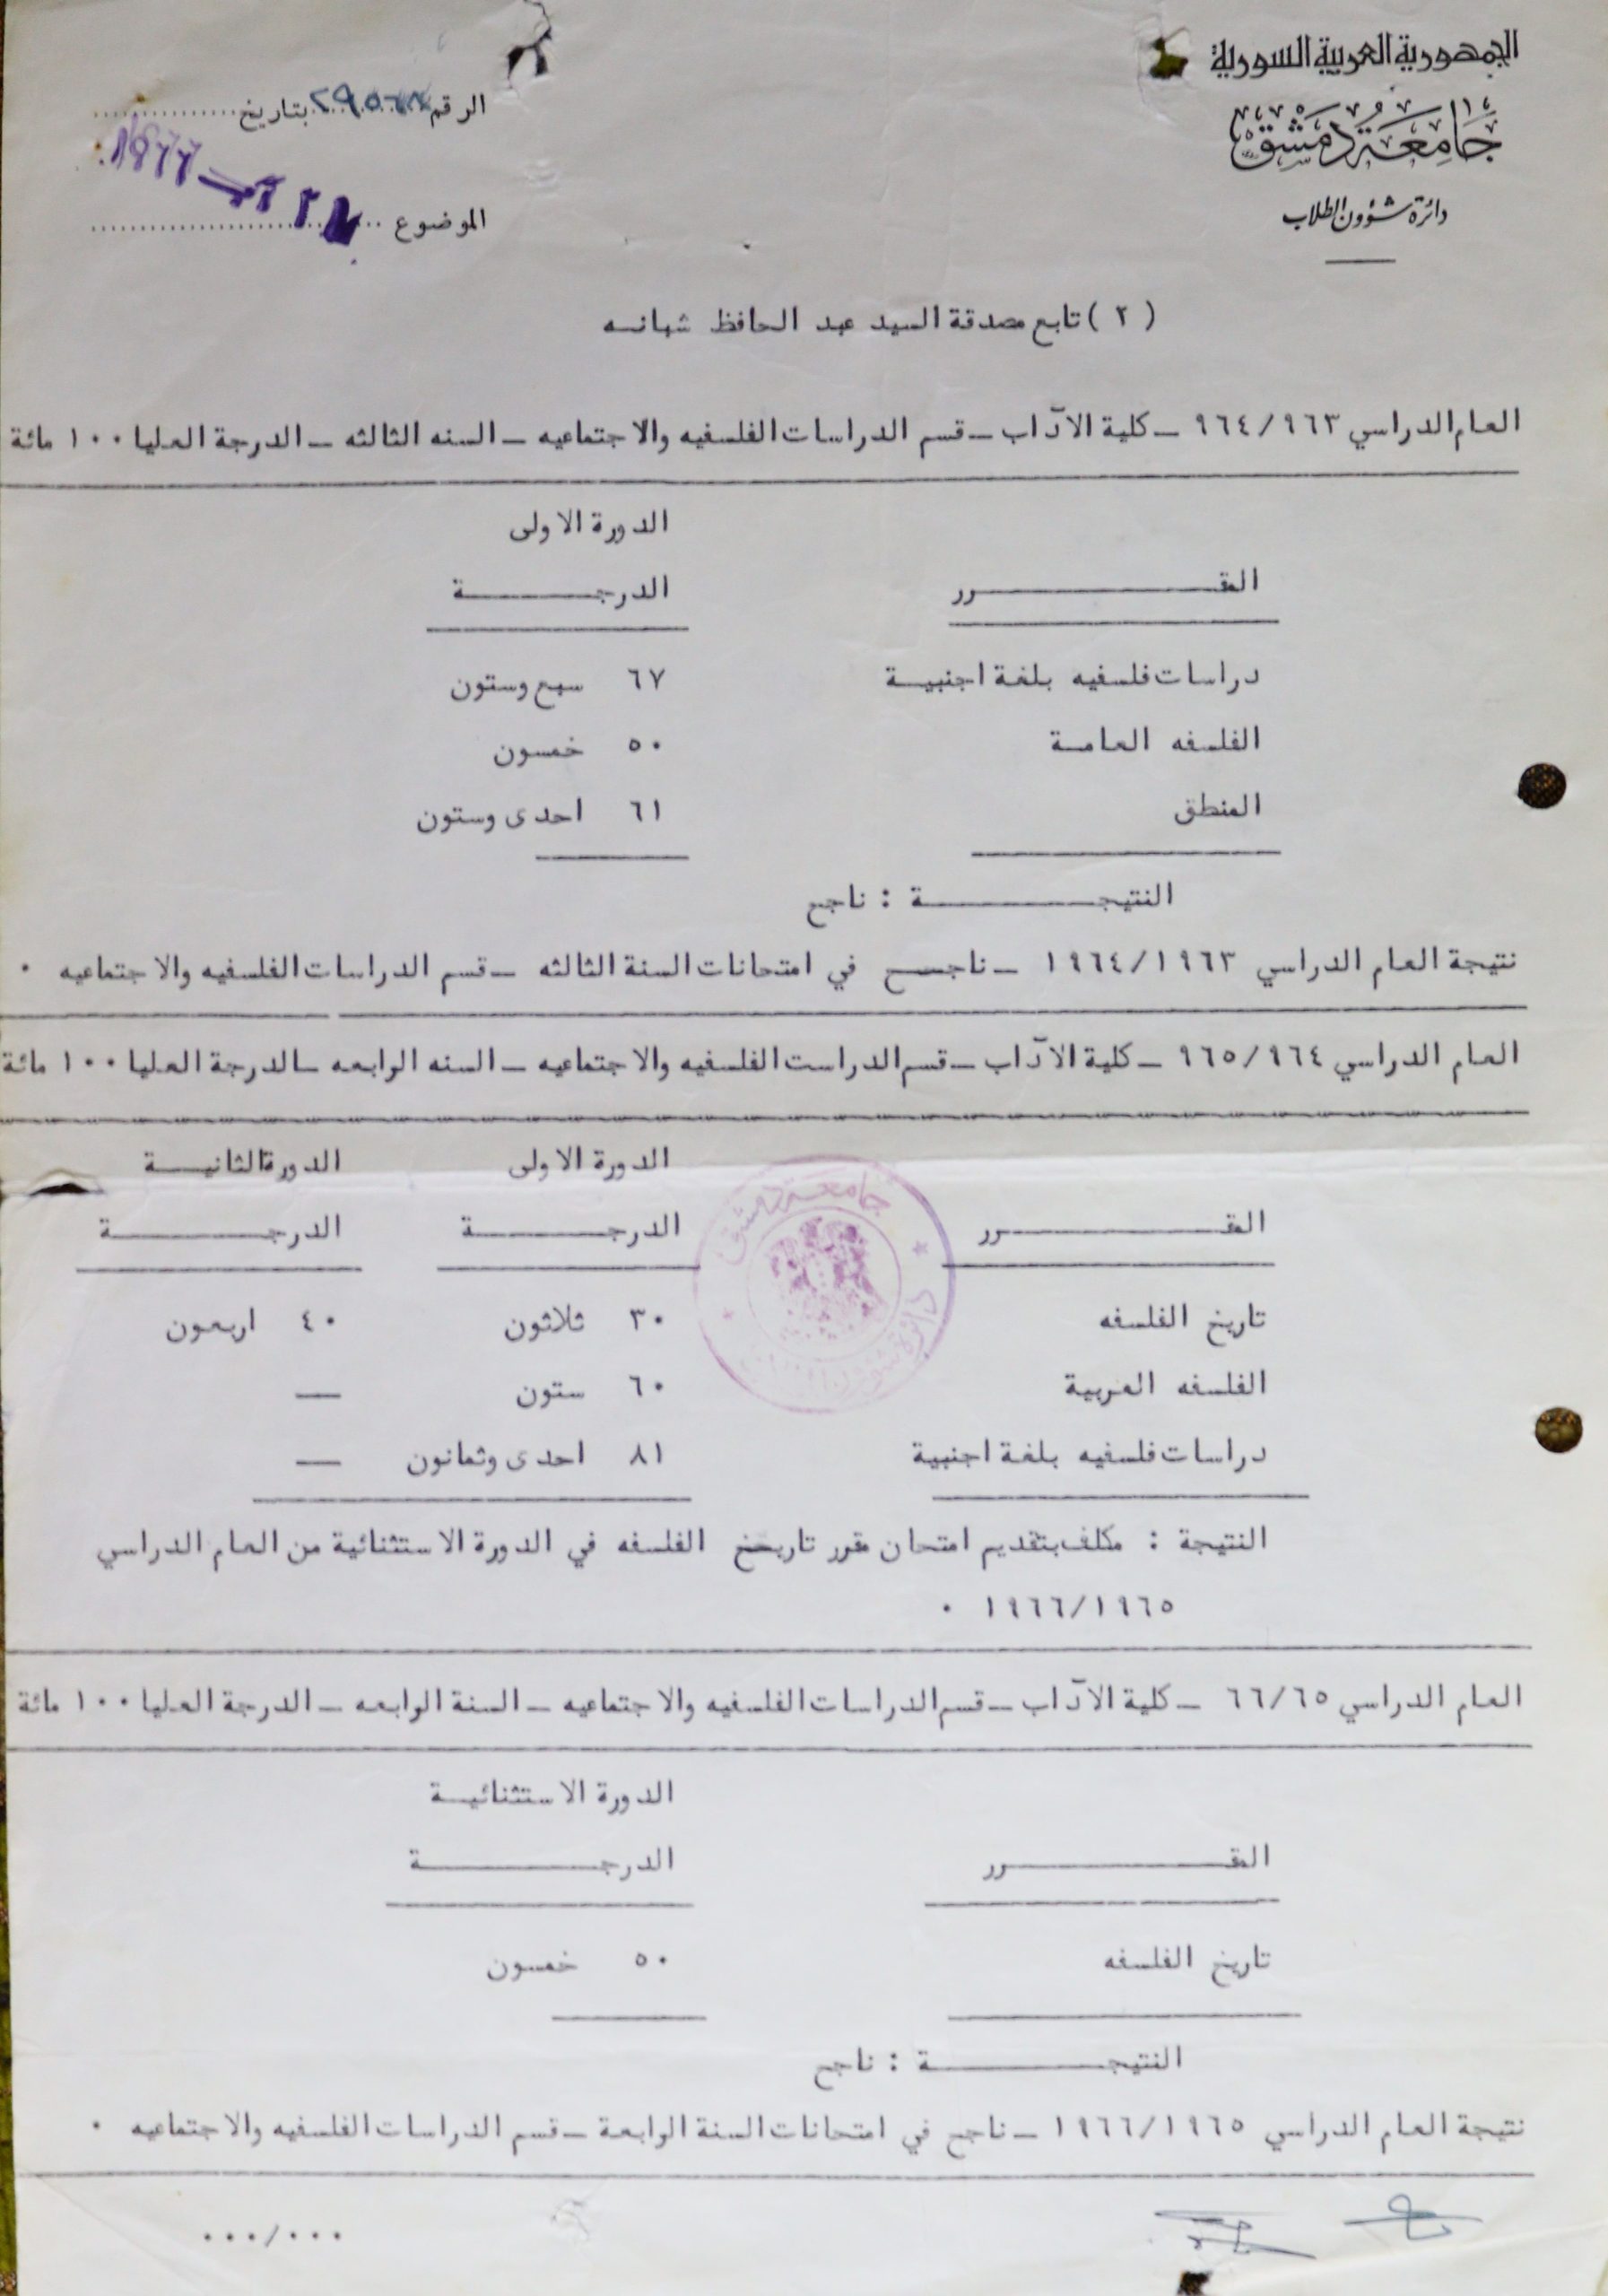 الجمهورية العربية السورية
جَامِعَة دِمَشق
دائرة شؤون الطلاب
الرقم بتاريخ
الموضوع
( ٢ ) تابع مصدقة السيد عبد الحافظ شبانه
العام الدراسي ٩٦٤/٩٦٣ ـ كلية الآداب ـ قسم الدراسات الفلسفيه والاجتماعيه ـ السنه الثالثه ـ الدرجة العليا ١٠٠ مائة
الدورة الاولى
المقـــــــــرر الدرجـــــــــة
دراسات فلسفيه بلغة اجنبيـة ٦٧ سبع وستون
الفلسفه العامـة ٥٠ خمسون
المنطق ٦١ احدى وستون
النتيجـــــــــة : ناجح
نتيجة العام الدراسي ١٩٦٤/١٩٦٣ ـ ناجــح في امتحانات السنة الثالثه ـ قسم الدراسات الفلسفيه والاجتماعيه .
العام الدراسي ٩٦٥/٩٦٤ ـ كلية الآداب ـ قسم الدراست الفلسفيه والاجتماعيه ـ السنه الرابعه ـ الدرجة العليا ١٠٠ مائة
الدورة الاولى الدورة الثانيـــة
المقـــــــــرر الدرجـــــــــة الدرجـــــــــة
تاريخ الفلسفه ٣٠ ثلاثون ٤٠ اربعون
الفلسفه العربية ٦٠ ستون —
دراسات فلسفيه بلغة اجنبية ٨١ احدى وثمانون —
جامعة دمشق
النتيجة : مكلف بتقديم امتحان مقرر تاريخ الفلسفه في الدورة الاستثنائية من العام الدراسي
١٩٦٦/١٩٦٥ .
العام الدراسي ٦٦/٦٥ ـ كلية الآداب ـ قسم الدراسات الفلسفيه والاجتماعيه ـ السنة الرابعه ـ الدرجة العليا ١٠٠ مائة
الدورة الاستثنائيــة
المقـــــــــرر الدرجـــــــــة
تاريخ الفلسفه ٥٠ خمسون
النتيجـــــــــة : ناجح
نتيجة العام الدراسي ١٩٦٦/١٩٦٥ ـ ناجح في امتحانات السنة الرابعة ـ قسم الدراسات الفلسفيه والاجتماعيه .
.../...